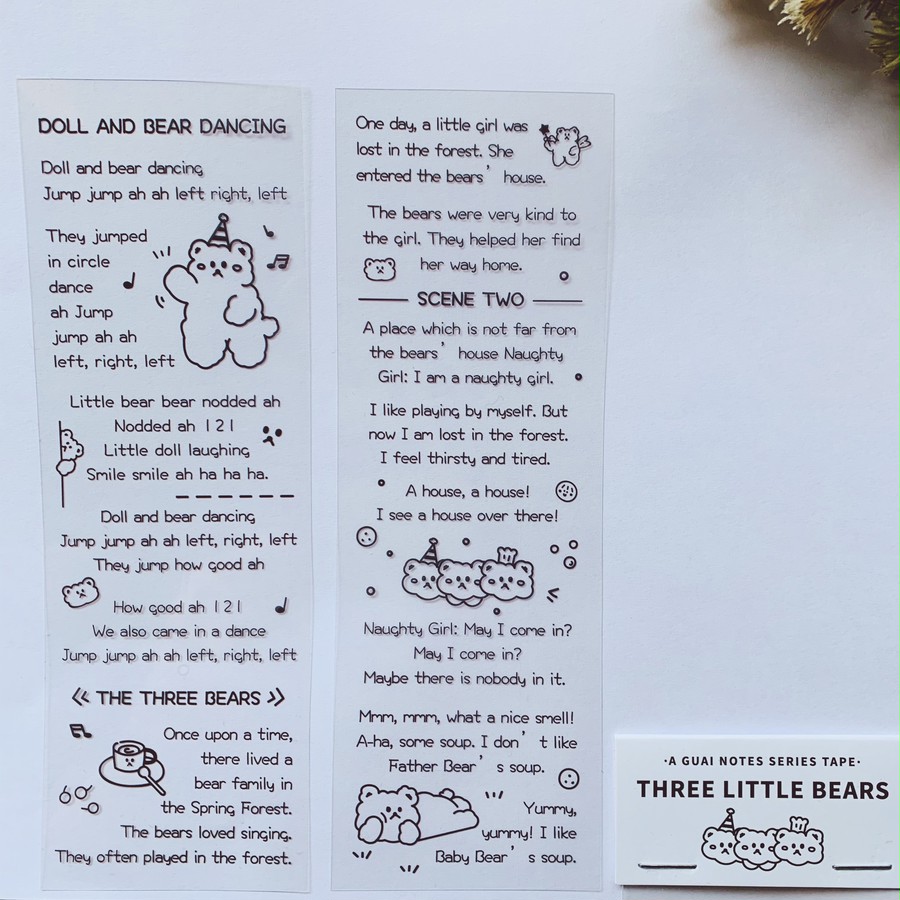 DOLL AND BEAR DANCING
Doll and bear dancing
Jump jump ah ah left right, left
They jumped
in circle
dance
ah Jump
jump ah ah
left, right, left
Little bear bear nodded ah
Nodded ah 1 2 1
Little doll laughing
Smile smile ah ha ha ha.
Doll and bear dancing
Jump jump ah ah left, right, left
They jump how good ah
How good ah 1 2 1
We also came in a dance
Jump jump ah ah left, right, left
《 THE THREE BEARS 》
Once upon a time,
there lived a
bear family in
the Spring Forest.
The bears loved singing.
They often played in the forest.
One day, a little girl was
lost in the forest. She
entered the bears’ house.
The bears were very kind to
the girl. They helped her find
her way home.
SCENE TWO
A place which is not far from
the bears’ house Naughty
Girl: I am a naughty girl.
I like playing by myself. But
now I am lost in the forest.
I feel thirsty and tired.
A house, a house!
I see a house over there!
Naughty Girl: May I come in?
May I come in?
Maybe there is nobody in it.
Mmm, mmm, what a nice smell!
A-ha, some soup. I don’t like
Father Bear’s soup.
Yummy,
yummy! I like
Baby Bear’s soup.
·A GUAI NOTES SERIES TAPE·
THREE LITTLE BEARS